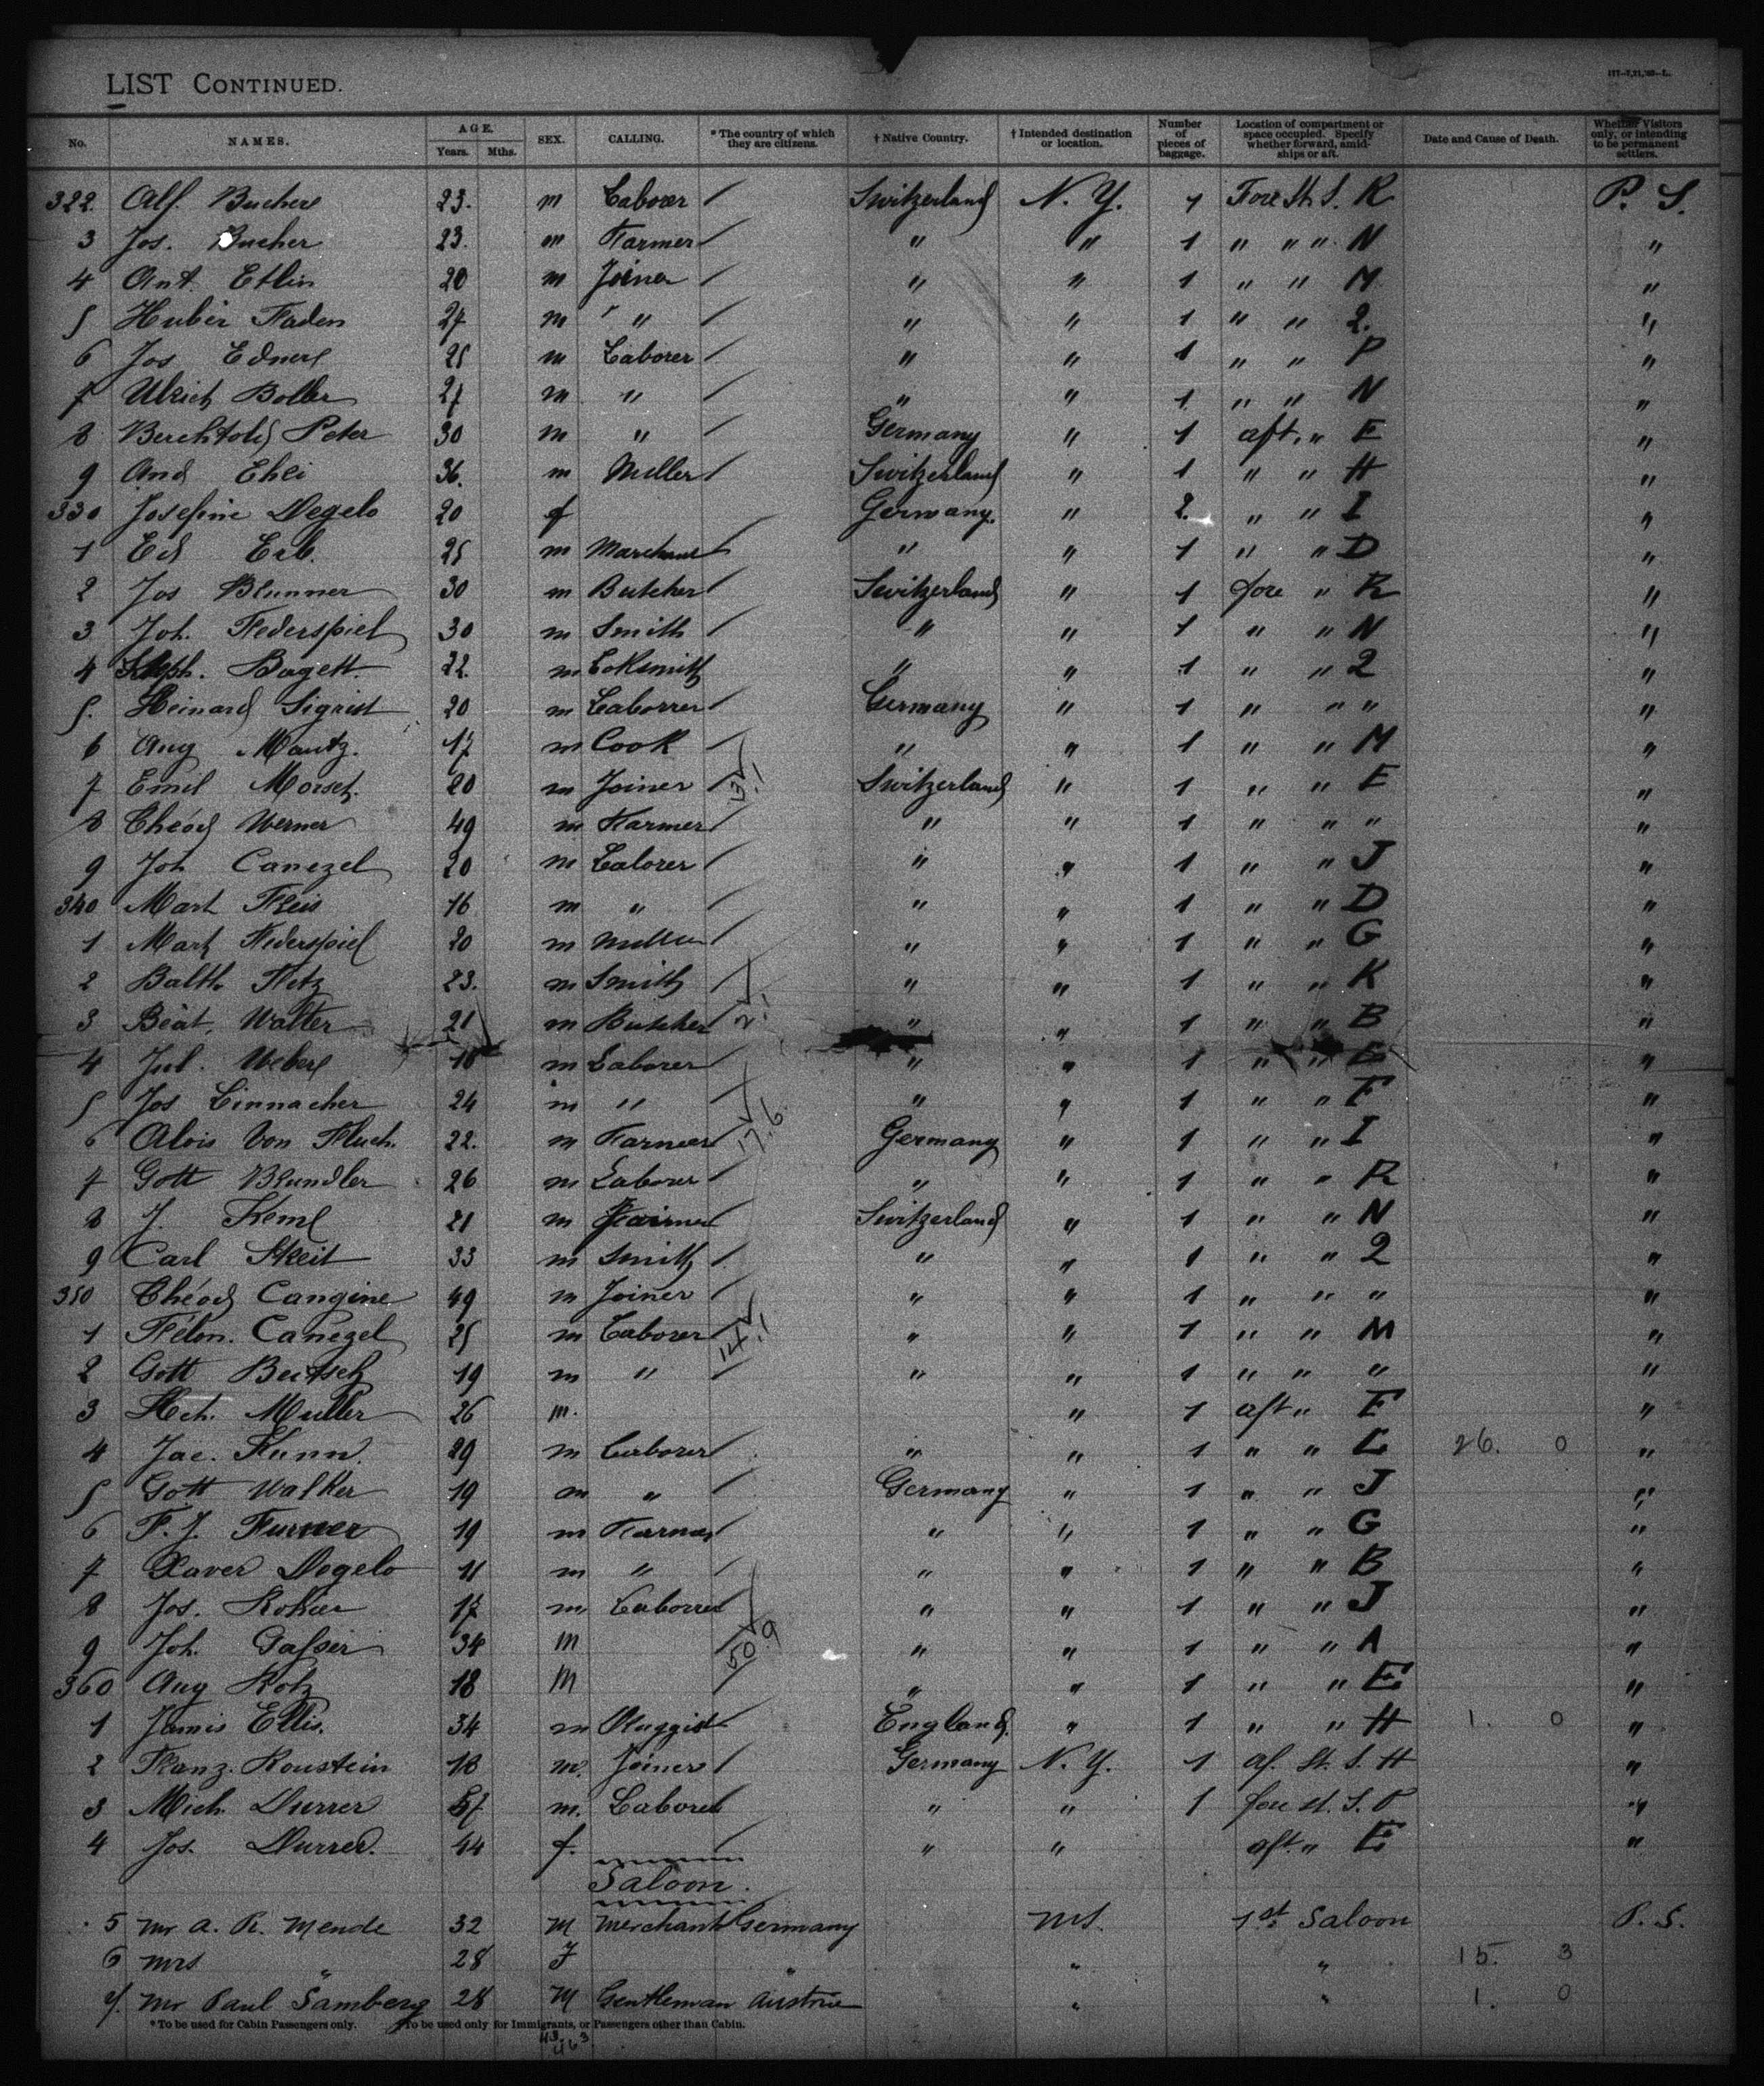 LIST CONTINUED.
177-7,21,'93-L.
No. NAMES. AGE. Years. Mths. SEX. CALLING. * The country of which they are citizens. † Native Country. † Intended destination or location. Number of pieces of baggage. Location of compartment or space occupied. Specify whether forward, amidships or aft. Date and Cause of Death. Whether Visitors only, or intending to be permanent settlers.
322. Alf. Bucher 23. m Laborer / Switzerland N. Y. 1 Fore St. S. R P. S.
3 Jos. Bucher 23. m Farmer / " " 1 " " " N "
4 Ant. Etlin 20 m Joiner / " " 1 " " M "
5 Huber Faden 27 m " / " " 1 " " 2. "
6 Jos 25 m Laborer / " " 1 " " P "
7 Ulrich Boller 27 m " / " " 1 " " N "
8 Berchtold Peter 30 m " / Germany " 1 aft. " E "
9 And Ehli 36. m Miller / Switzerland " 1 " " H "
330 Josefine Degelo 20 f Germany. " 2. " " I "
1 Ed Erb. 25 m / " " 1 " " D "
2 Jos Brunner 30 m Butcher / Switzerland " 1 fore " R "
3 Joh. Federspiel 30 m Smith / " " 1 " " N "
4 Steph. Bagett. 22. m Loksmith " " 1 " " 2 "
5. Heinard Sigrist 20 m Laborrer / Germany " 1 " " " "
6 Aug Mautz. 17 m Cook / " " 1 " " M "
7 Emil 20 m Joiner / Switzerland " 1 " " E "
8 Théod Werner 49 m Farmer / " " 1 " " " "
9 Joh Canezel 20 m Laborer / " " 1 " " J "
340 Mart 16 m " / " " 1 " " D "
1 Mart Federspiel 20 m Miller / " " 1 " " G "
2 Balth. 23. m Smith / " " 1 " " K "
3 Beat. Walter 21 m Butcher / " " 1 " " B "
4 Jul. Weber 18 m Laborer / " " 1 " " "
5 Jos Linnacher 24 m " / " " 1 " " F "
17.6
6 Alois Von Fluch. 22. m Farmer / Germany " 1 " " I "
7 Gott Brundler 26 m Laborer / " " 1 " " R "
8 J. 21 m Switzerland " 1 " " N "
9 Carl 33 m Smith / " " 1 " " 2 "
350 Théod Cangine 49 m Joiner / " " 1 " " " "
1 Canezel 25 m Laborer / " " 1 " " M "
2 Gott Bertsch 19 m " / " " 1 " " " "
3 Hch. Muller 26 m. " 1 aft " E "
4 Jac. Kunn. 29 m Laborer / " " 1 " " L 26. 0 "
5 Gott Walker 19 m " / Germany " 1 " " J "
6 F. J. Furrer 19 m Farmer / " " 1 " " G "
7 Xaver Degelo 11 m " / " " 1 " " B "
8 Jos. Rohrer 17 m Laborrer / " " 1 " " J "
50.9
9 Joh. Gasser 34 m / " " 1 " " A "
360 Aug Rotz 18 m / " " 1 " " E "
1 James Ellis. 34 m Druggist / England. " 1 " " H 1. 0 "
2 Franz. Roustein 18 m. Joiner / Germany N. Y. 1 af. St. S. H "
3 Mich. Durrer 57 m. Laborer / " " 1 fore st. S. P "
4 Jos. Durrer. 44 f. / " " aft. " E "
Saloon.
5 Mr A. R. Mende 32 M Merchant Germany 1st Saloon P. S.
6 Mrs " 28 F " " " 15. 3
7. Mr Paul Samberg 28 M Gentleman Austria " " 1. 0
* To be used for Cabin Passengers only. † To be used only for Immigrants, or Passengers other than Cabin.